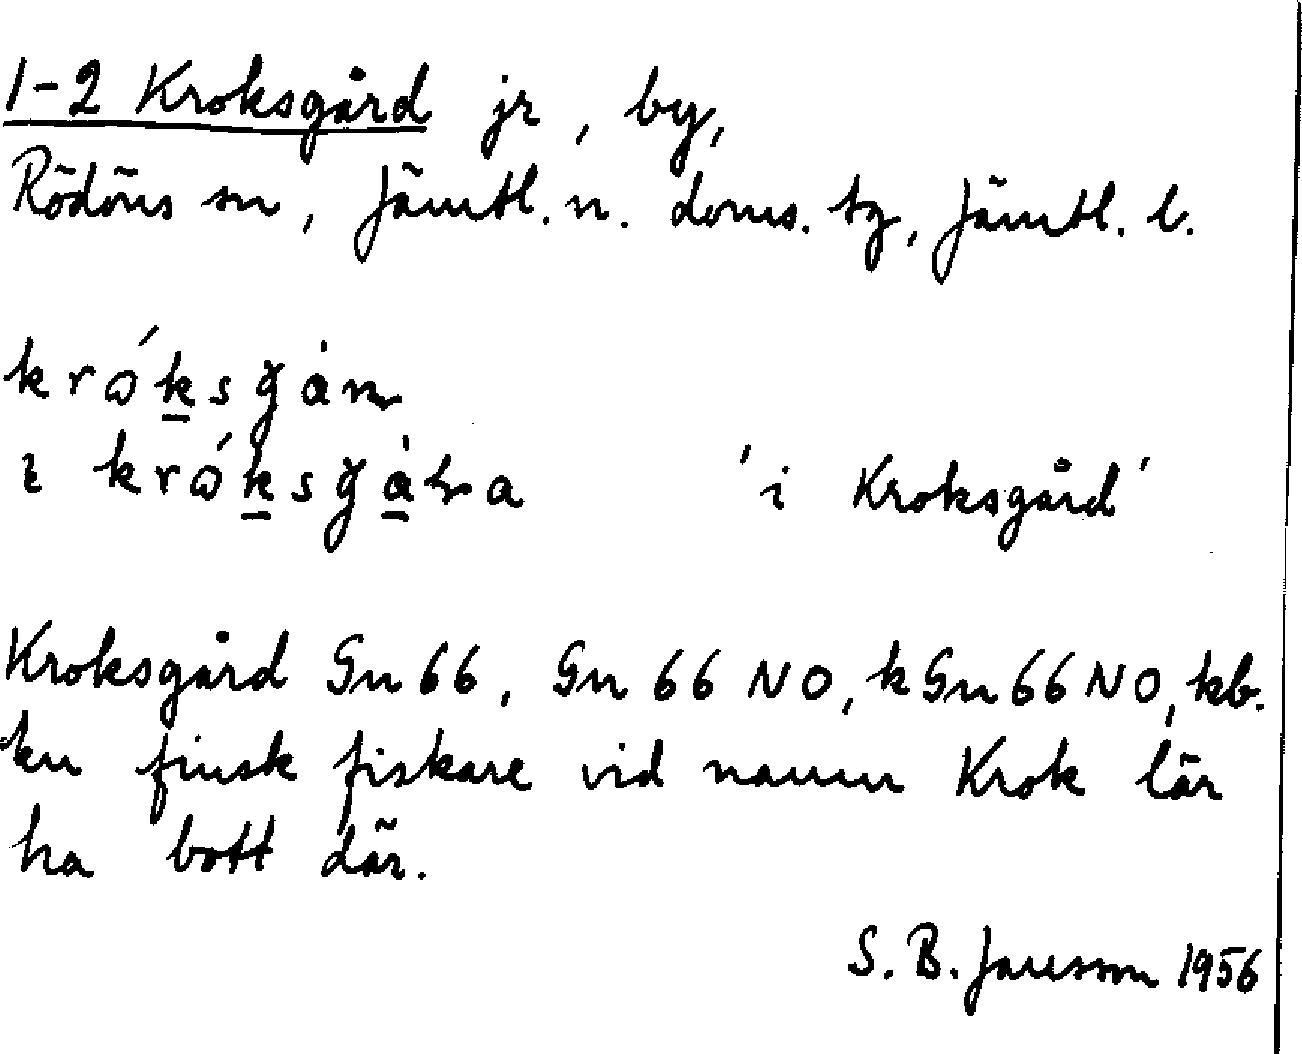 1-2 Kroksgård jr, by,
Rödöns sn, Jämtl. n. doms. tg, Jämtl. l.
króksgån
ɩ króksgåɽa 'i Kroksgård'
Kroksgård Gn 66, Gn 66 NO, k Gn 66 NO, kb.
En finsk fiskare vid namn Krok lär
ha bott där.
S. B. Jansson 1956